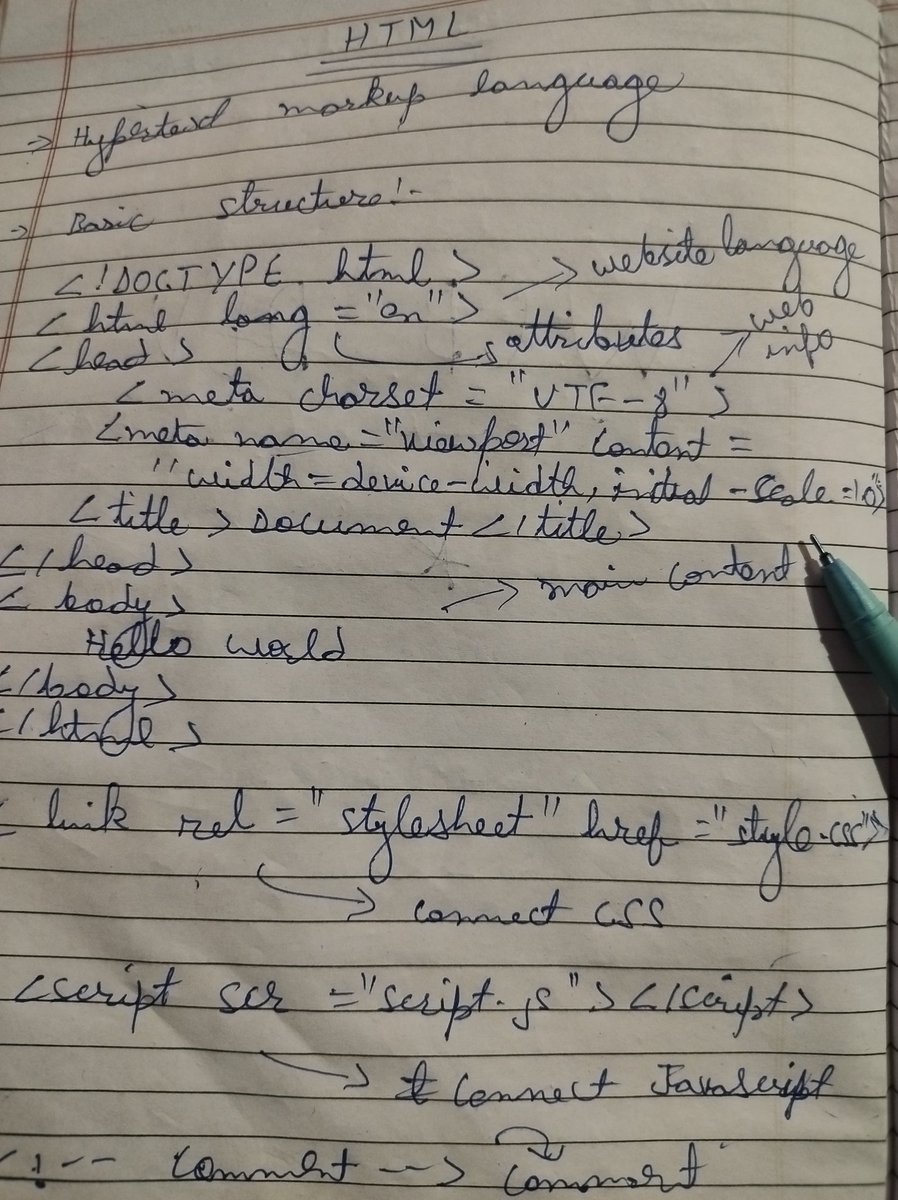 HTML
→ Hypertext markup language
→ Basic structure:-
<!DOCTYPE html>
<html lang="en"> → website language
<head> → attributes → web info
<meta charset="UTF-8">
<meta name="viewport" content=
"width=device-width, initial-scale=1.0">
<title>Document</title>
</head>
<body> → main content
Hello world
</body>
</html>
< link rel="stylesheet" href="style.css">
→ connect CSS
<script scr="script.js"></script>
→ connect Javascript
<!-- Comment --> Comment